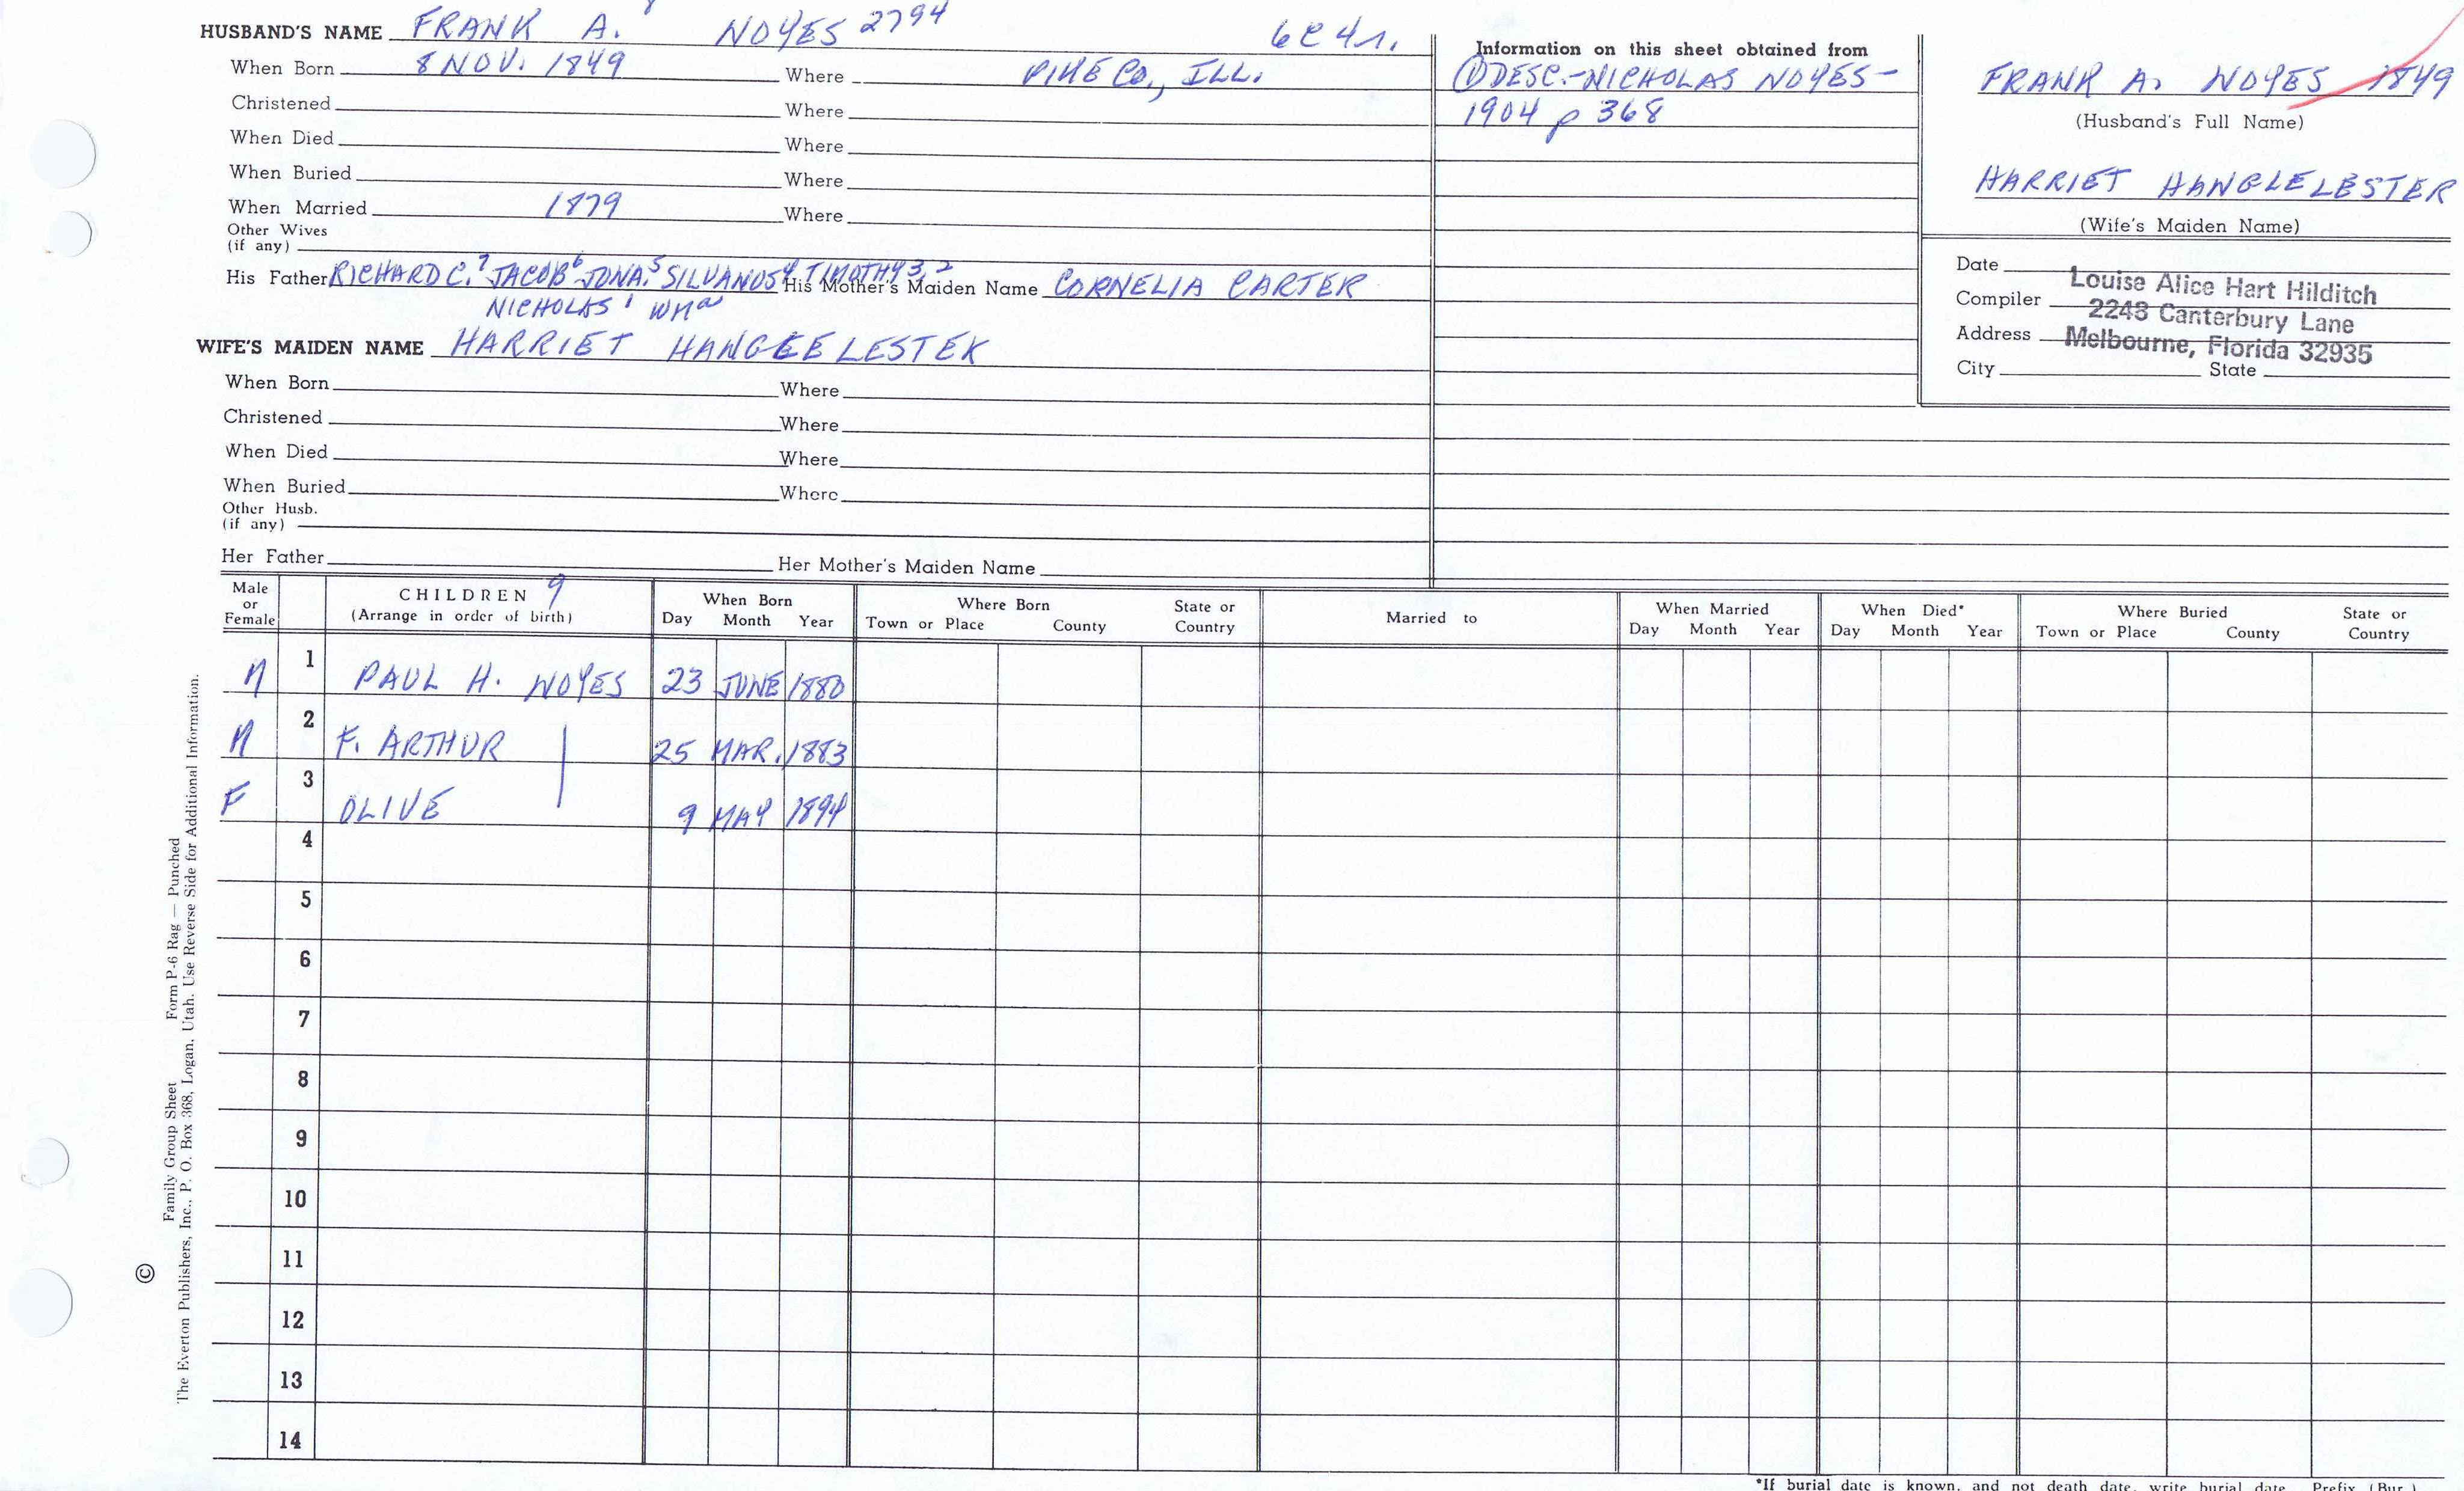 HUSBAND'S NAME FRANK A. NOYES 2794
When Born 8 NOV. 1849 Where PIKE CO., ILL.
Christened Where
When Died Where
When Buried Where
When Married 1879 Where
Other Wives
(if any)
His Father RICHARD C.7 JACOB6 JONA.5 SILVANUS4 TIMOTHY3,2 His Mother's Maiden Name CORNELIA CARTER
NICHOLAS1 WMa
WIFE'S MAIDEN NAME HARRIET
When Born Where
Christened Where
When Died Where
When Buried Where
Other Husb.
(if any)
Her Father Her Mother's Maiden Name
Information on this sheet obtained from
① DESC.-NICHOLAS NOYES-
1904 p 368
FRANK A. NOYES 1849
(Husband's Full Name)
HARRIET HANGLELESTER
(Wife's Maiden Name)
Date
Compiler Louise Alice Hart Hilditch
Address 2248 Canterbury Lane
Melbourne, Florida 32935
City State
Male or Female CHILDREN 9 (Arrange in order of birth) When Born Day Month Year Where Born Town or Place County State or Country Married to When Married Day Month Year When Died* Day Month Year Where Buried Town or Place County State or Country
M 1 PAUL H. NOYES 23 JUNE 1880
M 2 F. ARTHUR | 25 MAR. 1883
F 3 OLIVE | 9 MAY 1894
4
5
6
7
8
9
10
11
12
13
14
© Family Group Sheet Form P-6 Rag — Punched
The Everton Publishers, Inc., P. O. Box 368, Logan, Utah. Use Reverse Side for Additional Information.
*If burial date is known, and not death date, write burial date. Prefix (Bur.)